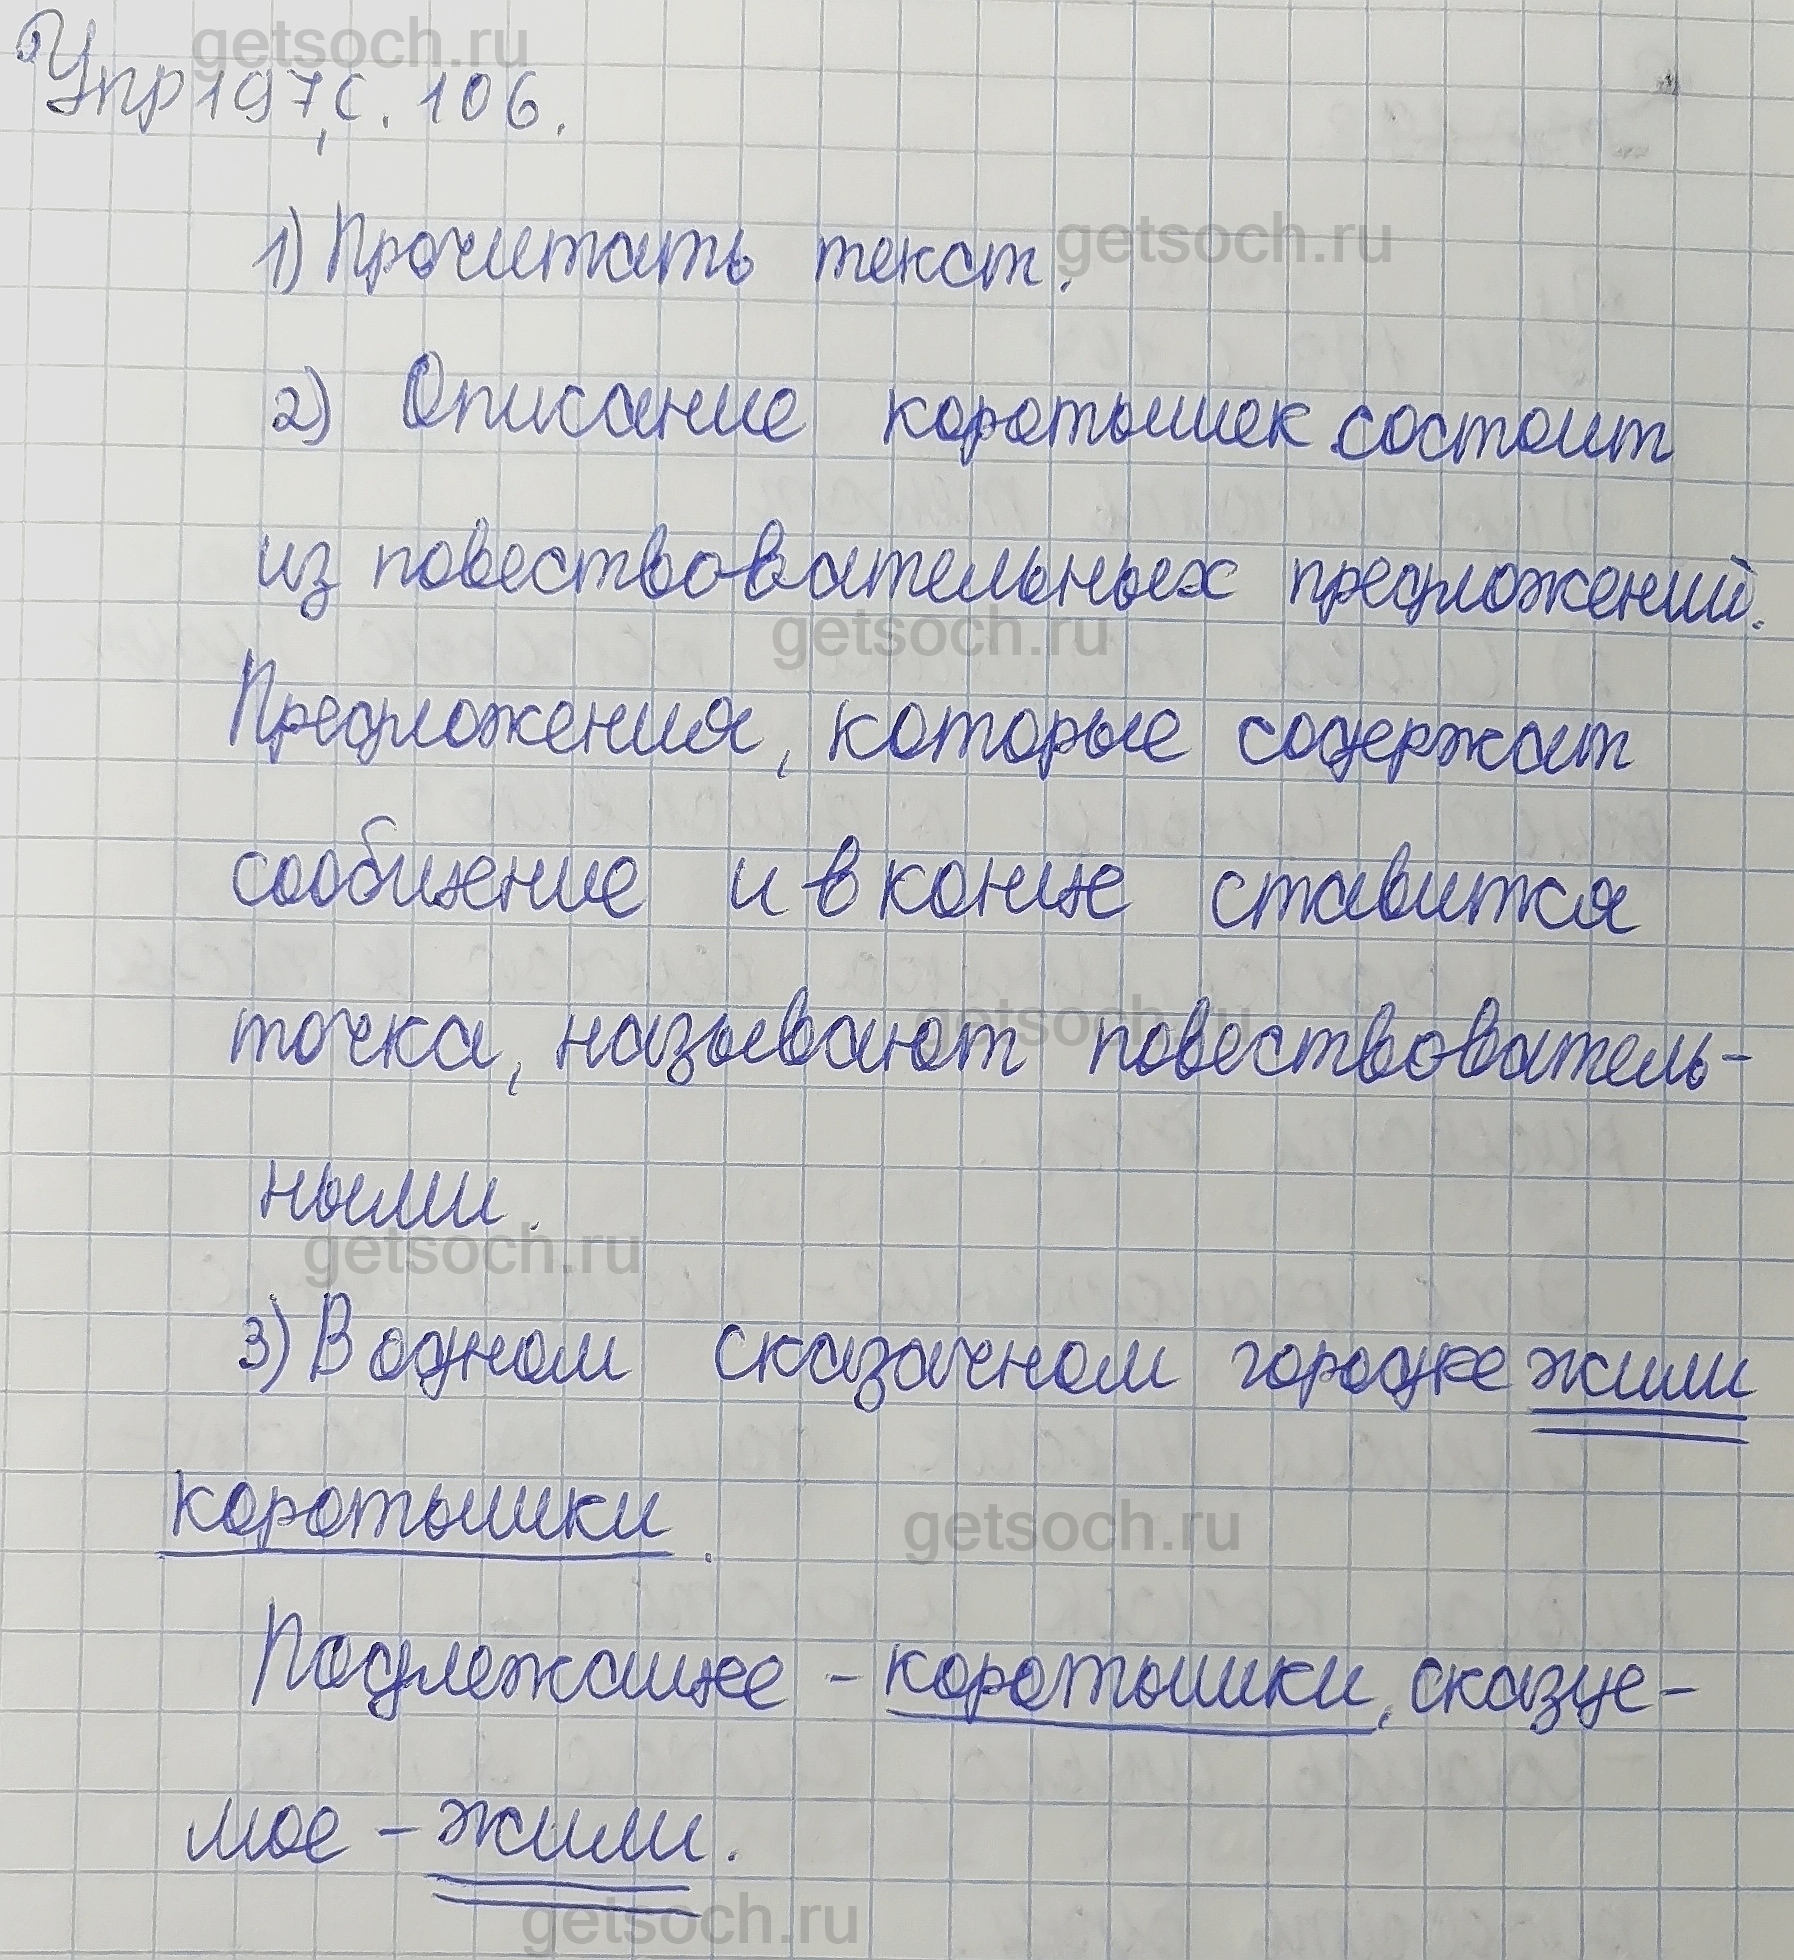 getsoch.ru
Упр 197, с. 106.
1) Прочитать текст.
getsoch.ru
2) Описание коротышек состоит
из повествовательных предложений.
getsoch.ru
Предложения, которые содержат
сообщение и в конце ставится
точка, называют повествователь-
getsoch.ru
ными.
getsoch.ru
3) В одном сказочном городке жили
коротышки.
getsoch.ru
Подлежащее - коротышки, сказуе-
мое - жили.
getsoch.ru